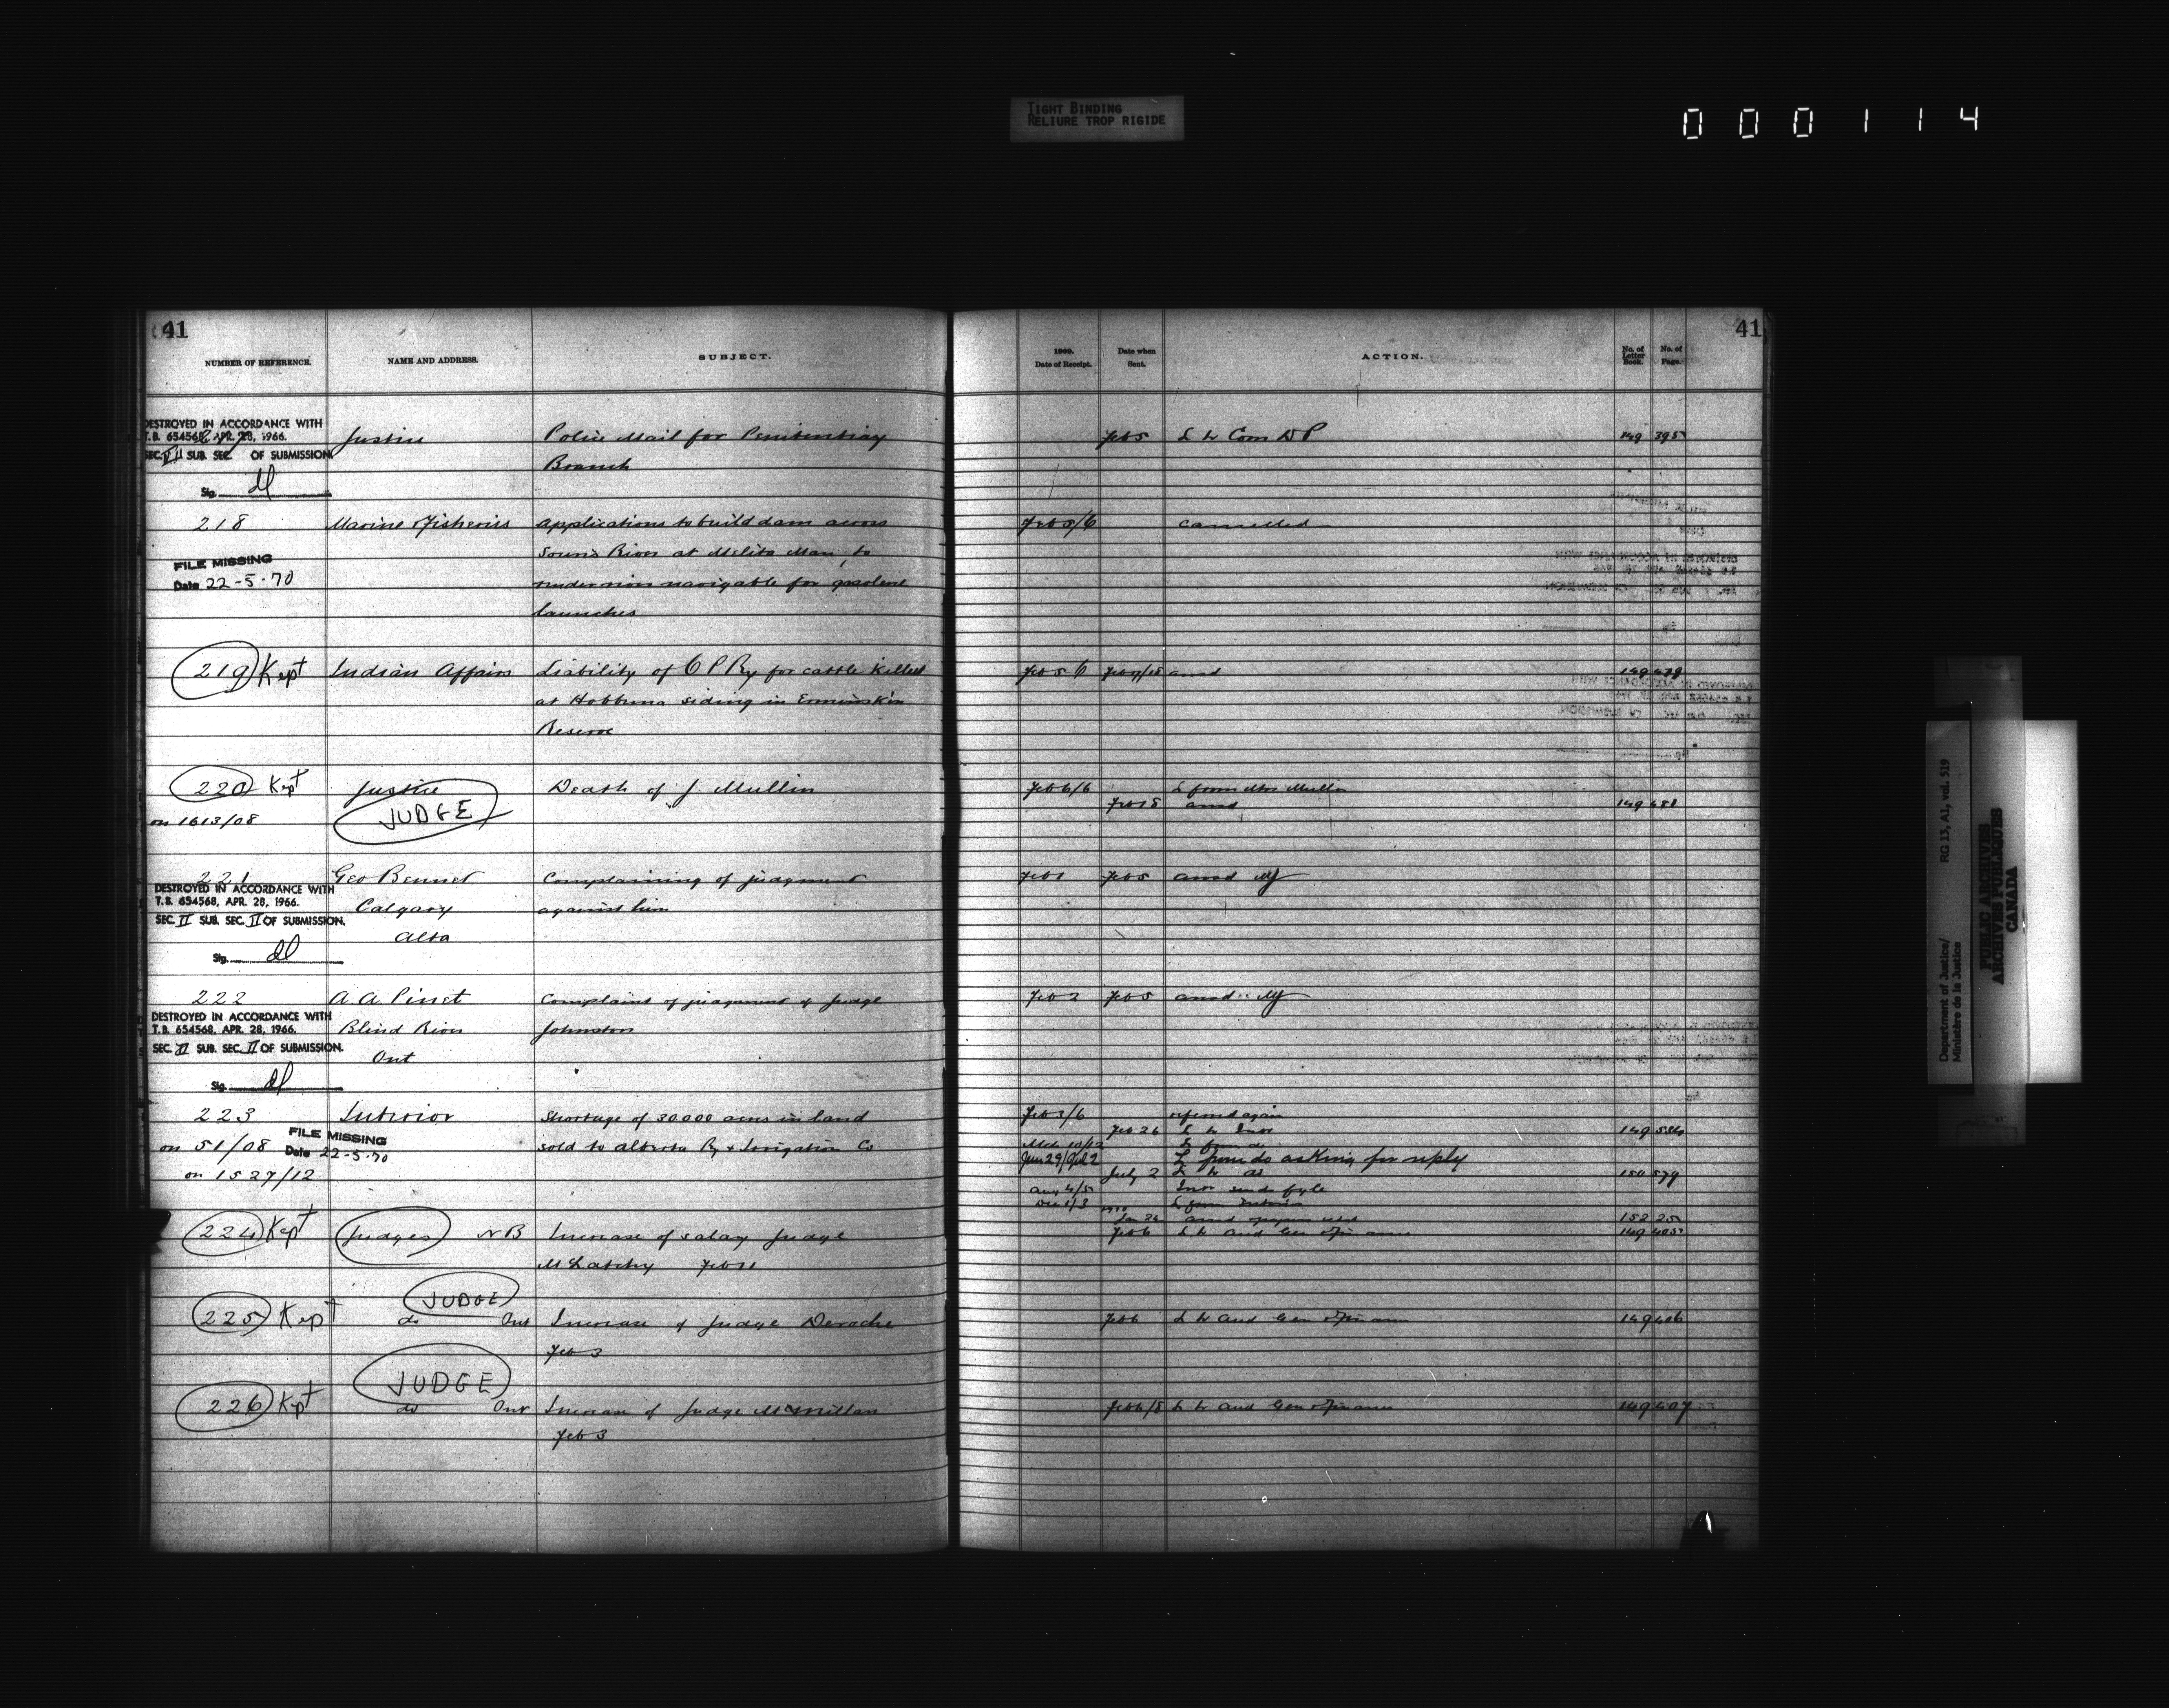 TIGHT BINDING
RELIURE TROP RIGIDE
000114
41
NUMBER OF REFERENCE. NAME AND ADDRESS. SUBJECT.
DESTROYED IN ACCORDANCE WITH
T.B. 654568, APR. 28, 1966.
SEC. II SUB. SEC. OF SUBMISSION
Sig.
Justice Police Mail for Penitentiary
Branch
218 Marine & Fisheries Applications to build dam across
Souris River at Melita Man, to
render river navigable for gasolene
launches
FILE MISSING
Date 22-5-70
219 Kept Indian Affairs Liability of C P Ry for cattle killed
at Hobbema siding in Ermineskin
Reserve
220 Kept Justice Death of J Mullin
on 1613/08 JUDGE
221 Geo Bennet Complaining of judgment
Calgary against him
Alta
DESTROYED IN ACCORDANCE WITH
T.B. 654568, APR. 28, 1966.
SEC. II SUB. SEC. II OF SUBMISSION.
Sig.
222 A. A. Pinet Complaint of judgment of Judge
Blind River Johnston
Ont
DESTROYED IN ACCORDANCE WITH
T.B. 654568, APR. 28, 1966.
SEC. II SUB. SEC. II OF SUBMISSION.
Sig.
223 Interior Shortage of 30.000 acres in land
on 51/08 sold to Alberta Ry & Irrigation Co
FILE MISSING
Date 22-5-70
on 1527/12
224 Kept Judges N B Increase of salary Judge
McLatchy Feb 11
JUDGE
225 Kept do Ont Increase of Judge Deroche
Feb 3
JUDGE
226 Kept do Ont Increase of Judge McMillan
Feb 3
41
1909. Date of Receipt. Date when Sent. ACTION. No. of Letter Book. No. of Page.
Feb 5 L to Com D P 149 395
Feb 5/6 cancelled
Feb 5 6 ansd 149 439
Feb 6/6 L from Mrs Mullin
Feb 18 ansd 149 481
Feb 1 Feb 5 ansd MJ
Feb 2 Feb 5 ansd MJ
Feb 3/6 referred again
Feb 26 L to Inor 149
Mch 10/12 L from do
June 29/Jul 2 L from do asking for reply
July 2 L to do 150 579
Aug 4/5 Inor sends fyle
Dec 1/3 L from Interior
1910
Jan 26 ansd 152 25
Feb 6 L to Aud Gen & Finance 149 405
Feb 6 L to Aud Gen & Finance 149 406
Feb 6/8 L to Aud Gen & Finance 149 407
Department of Justice/
Ministère de la Justice
RG 13, A1, vol. 519
PUBLIC ARCHIVES
ARCHIVES PUBLIQUES
CANADA